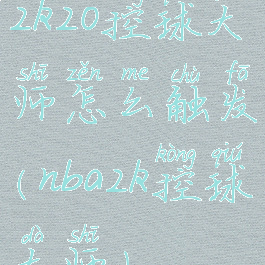 2k20控球大
shī zěn me chù fā
师怎么触发
kòng qiú
(nba2k控球
dà shī
大师)